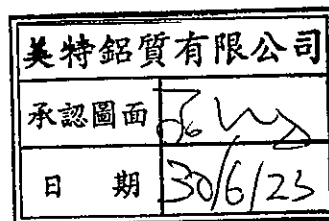 美特鋁質有限公司
承認圖面
日 期 30/6/23